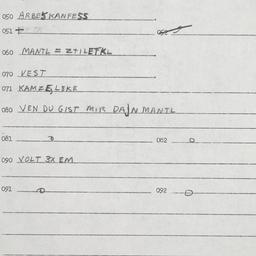 050 ARBE5KANFESS
051 +
060 MANTL = ZTILETKL
070 VEST
071 KAMZELEKE
080 VEN DU GIST MIR DAJN MANTL
081 082
090 VOLT 3X EM
091 092